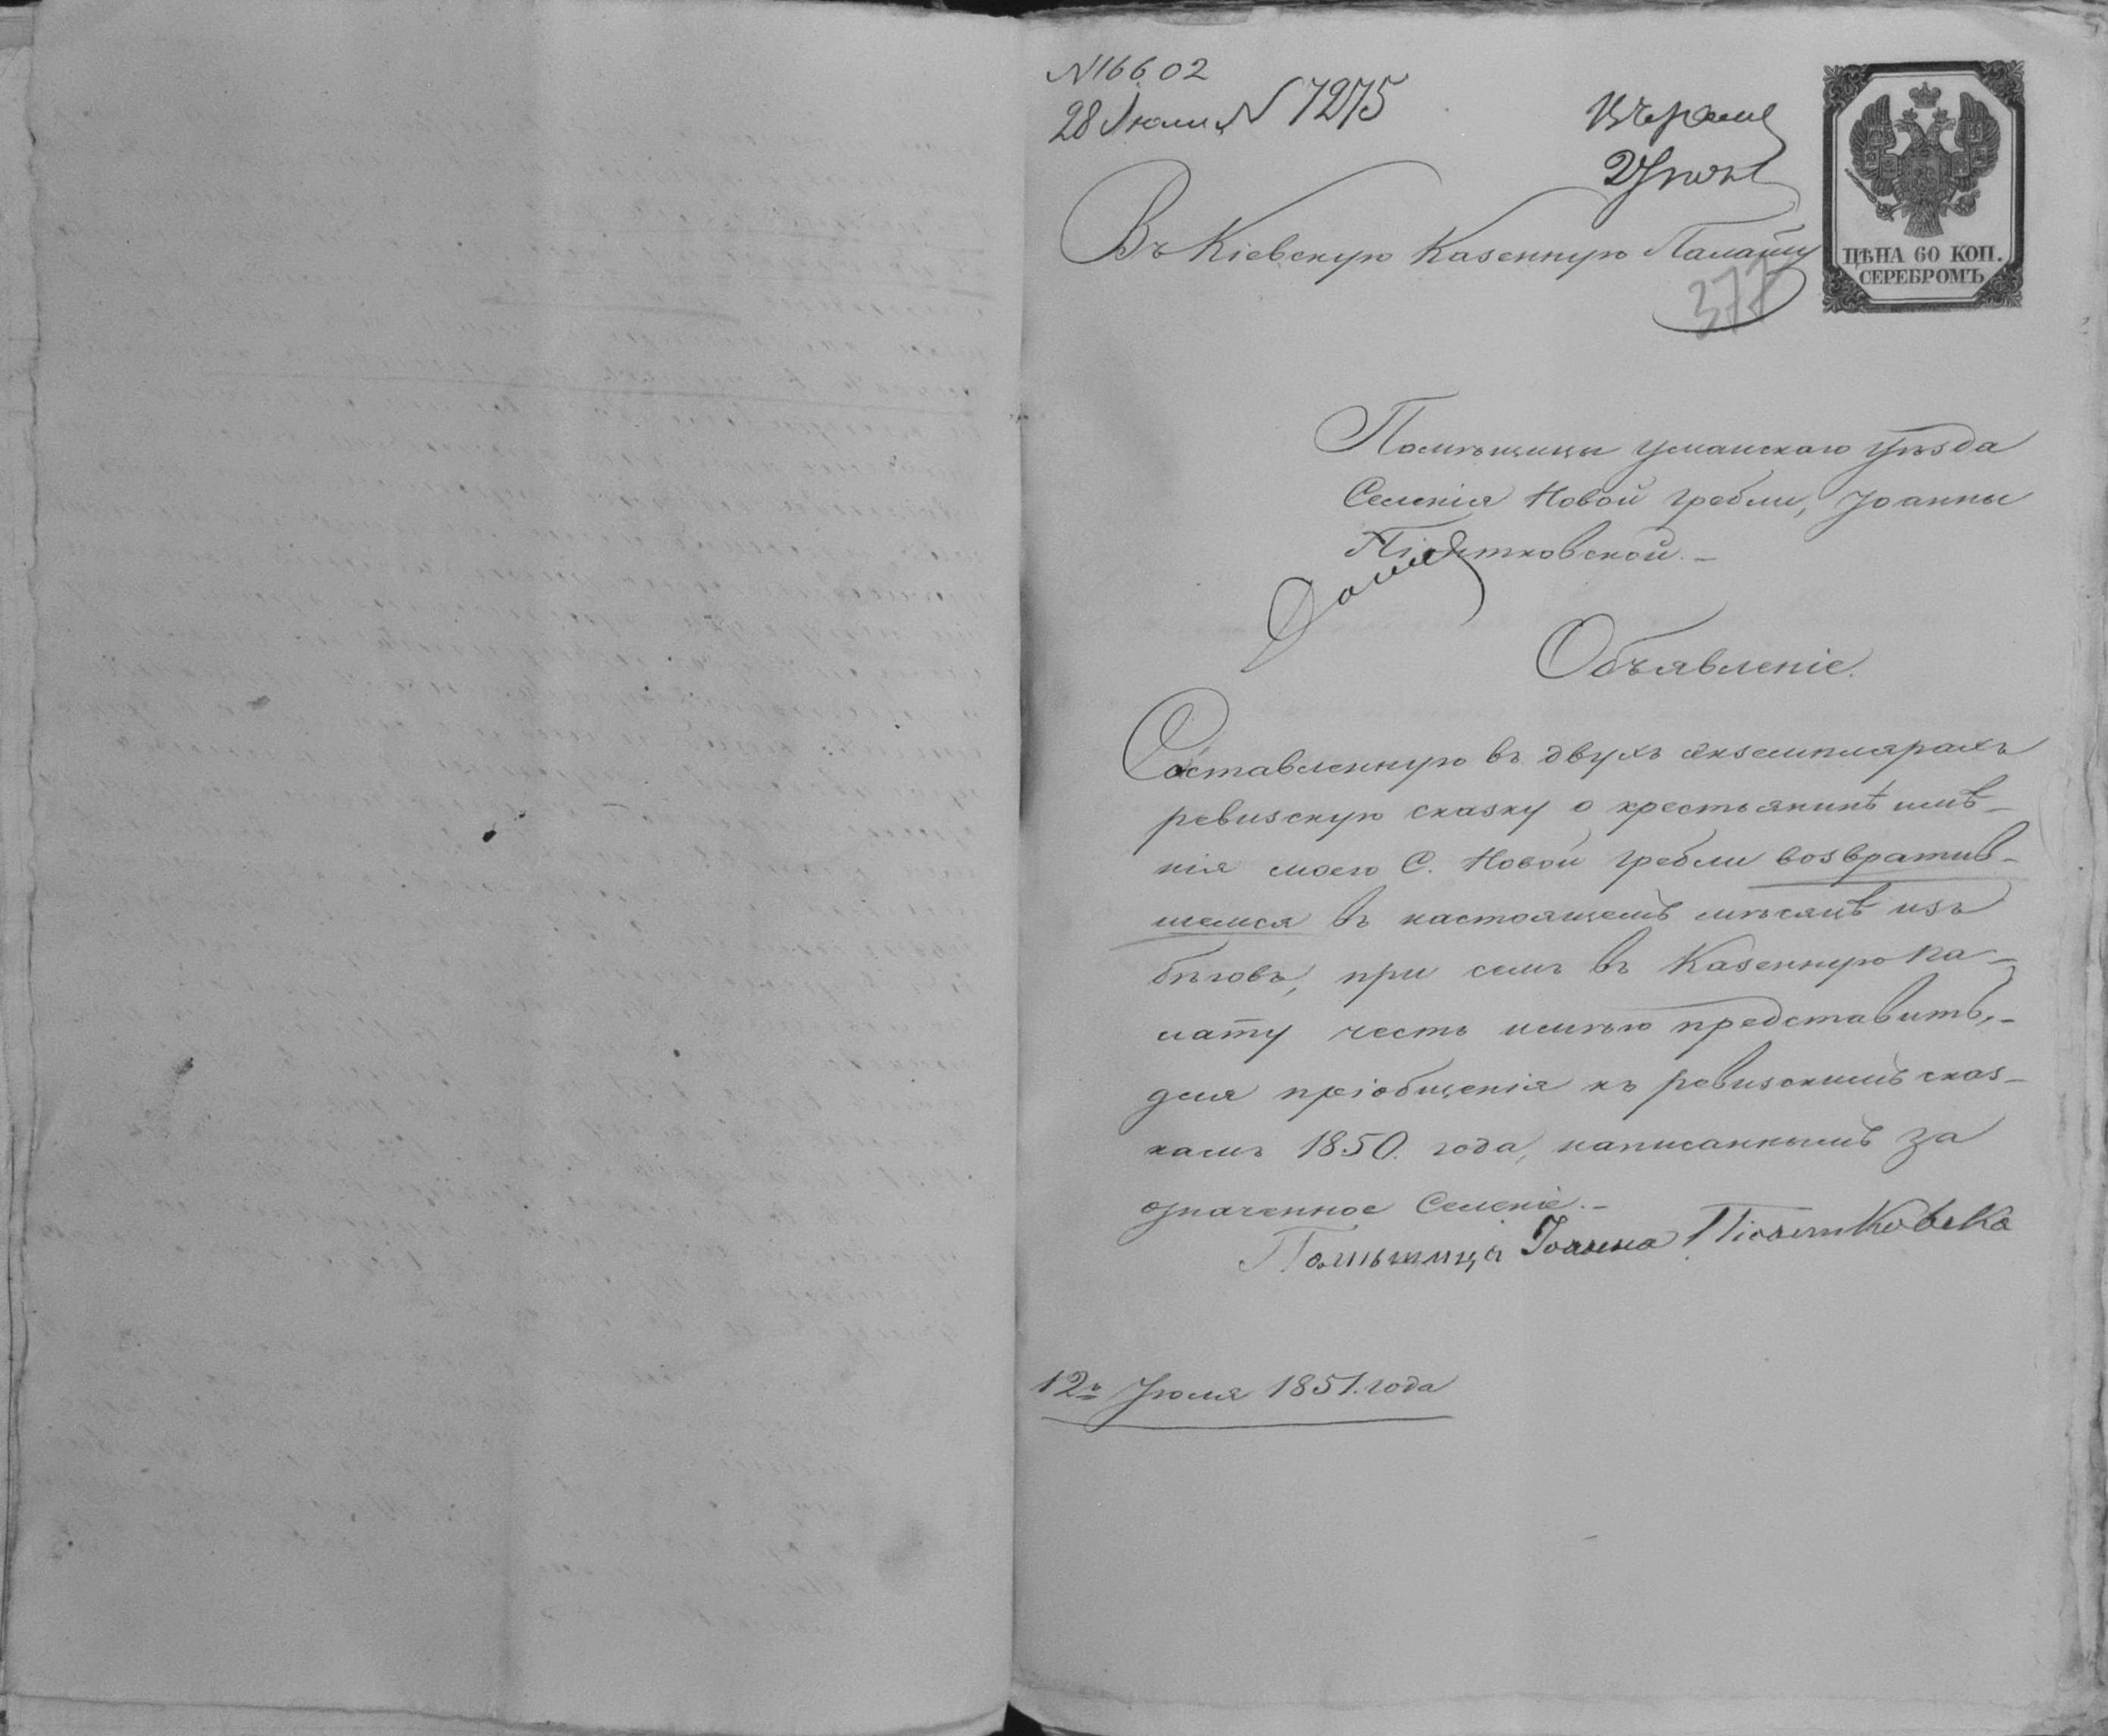 N 16602
28 Іюля N 7275
Въ Кіевскую Казенную Палату
377
ЦѢНА 60 КОП.
СЕРЕБРОМЪ
Помѣщицы Уманскаго Уѣзда
Селенія Новой Гребли, Іоанны
Піонтковской. –
Объявленіе.
Составленную въ двухъ экземплярахъ
ревизскую сказку о крестьянинѣ имѣ-
нія моего С. Новой Гребли возвратив-
шемся въ настоящемъ мѣсяцѣ изъ
бѣговъ, при семъ въ Казенную Па-
лату честь имѣю представить, –
для пріобщенія къ ревизскимъ сказ-
камъ 1850. года, написаннымъ за
означенное Селеніе. –
Помѣщица Іоанна Піонтковска
12го Іюля 1851. года